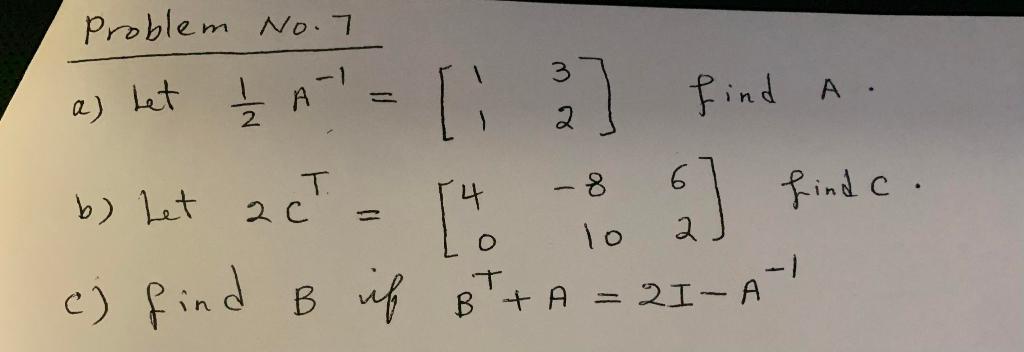 Problem No. 7
a) Let 1/2 A^-1 = [1 3; 1 2] find A.
b) Let 2C^T = [4 -8 6; 0 10 2] find C.
c) find B if B^T + A = 2I - A^-1